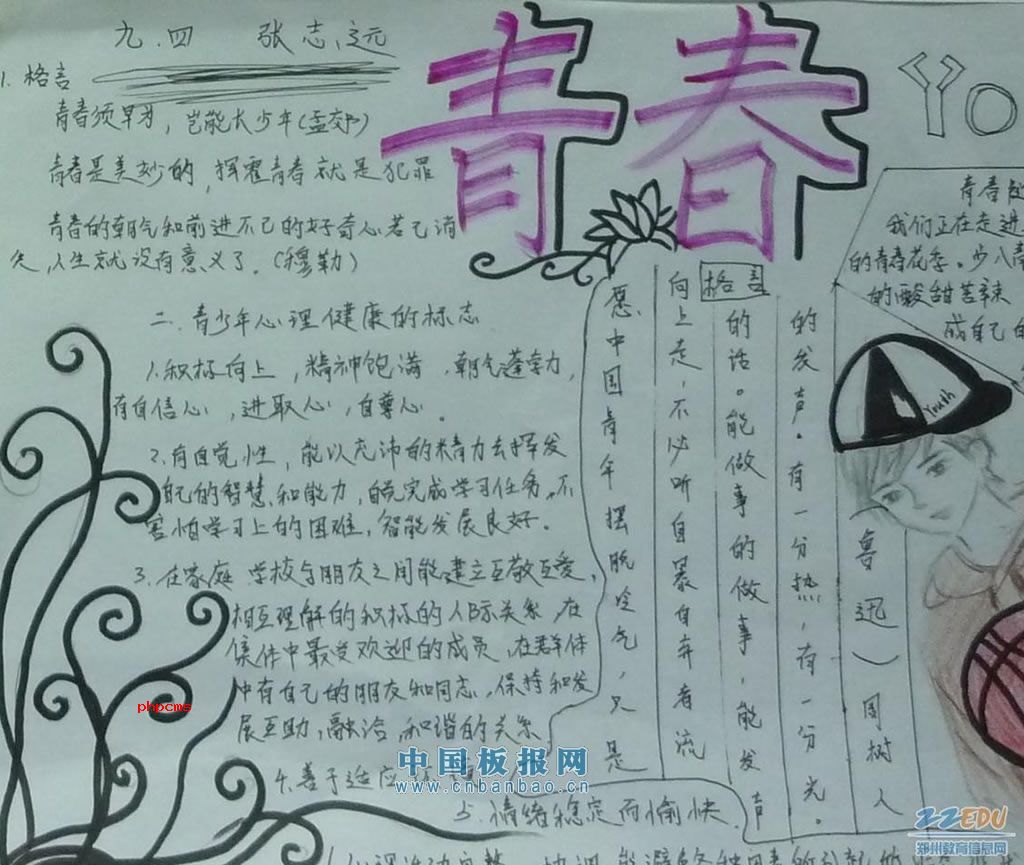 九.四 张志远
青春
Yo
1.格言
青春须早为，岂能长少年(孟郊)
青春是美妙的，挥霍青春就是犯罪
青春的朝气和前进不已的好奇心若已消
失，人生就没有意义了。(穆勒)
二.青少年心理健康的标志
1.积极向上，精神饱满，朝气蓬勃力，
有自信心，进取心，自尊心。
2.有自觉性，能以充沛的精力去挥发
自己的智慧和能力，自觉完成学习任务。不
害怕学习上的困难，智能发展良好。
3.在家庭 学校与朋友之间能建立互敬互爱，
相互理解的积极的人际关系，在
集体中最受欢迎的成员，在群体
中有自己的朋友和同志，保持和发
展互助，融洽，和谐的关系
4.善于适应
5.情绪稳定而愉快.
格言
愿中国青年摆脱冷气，只是
向上走，不必听自暴自弃者流
的话。能做事的做事，能发声
的发声。有一分热，有一分光。
（鲁迅）周树人
青春
我们正在走进
的青春花季。少八青
的酸甜苦辣
成自己的
Youth
phpcms
中国板报网
www.cnbanbao.cn
ZZEDU
郑州教育信息网